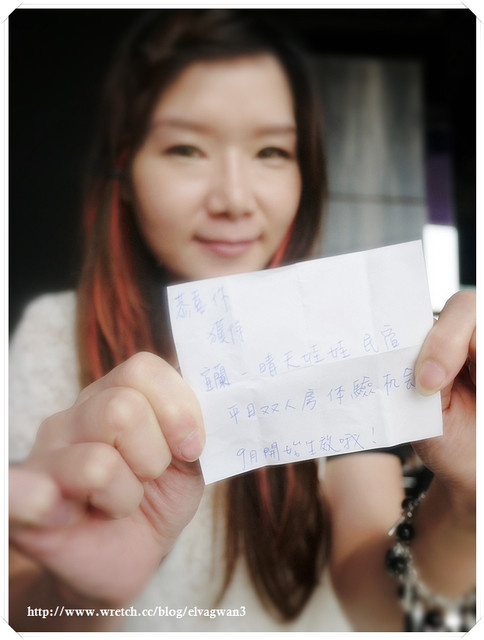 獲得
宜蘭-晴天娃娃民宿
平日双人房体驗机会
9月開始生放哦!
http://www.wretch.cc/blog/elvagwan3